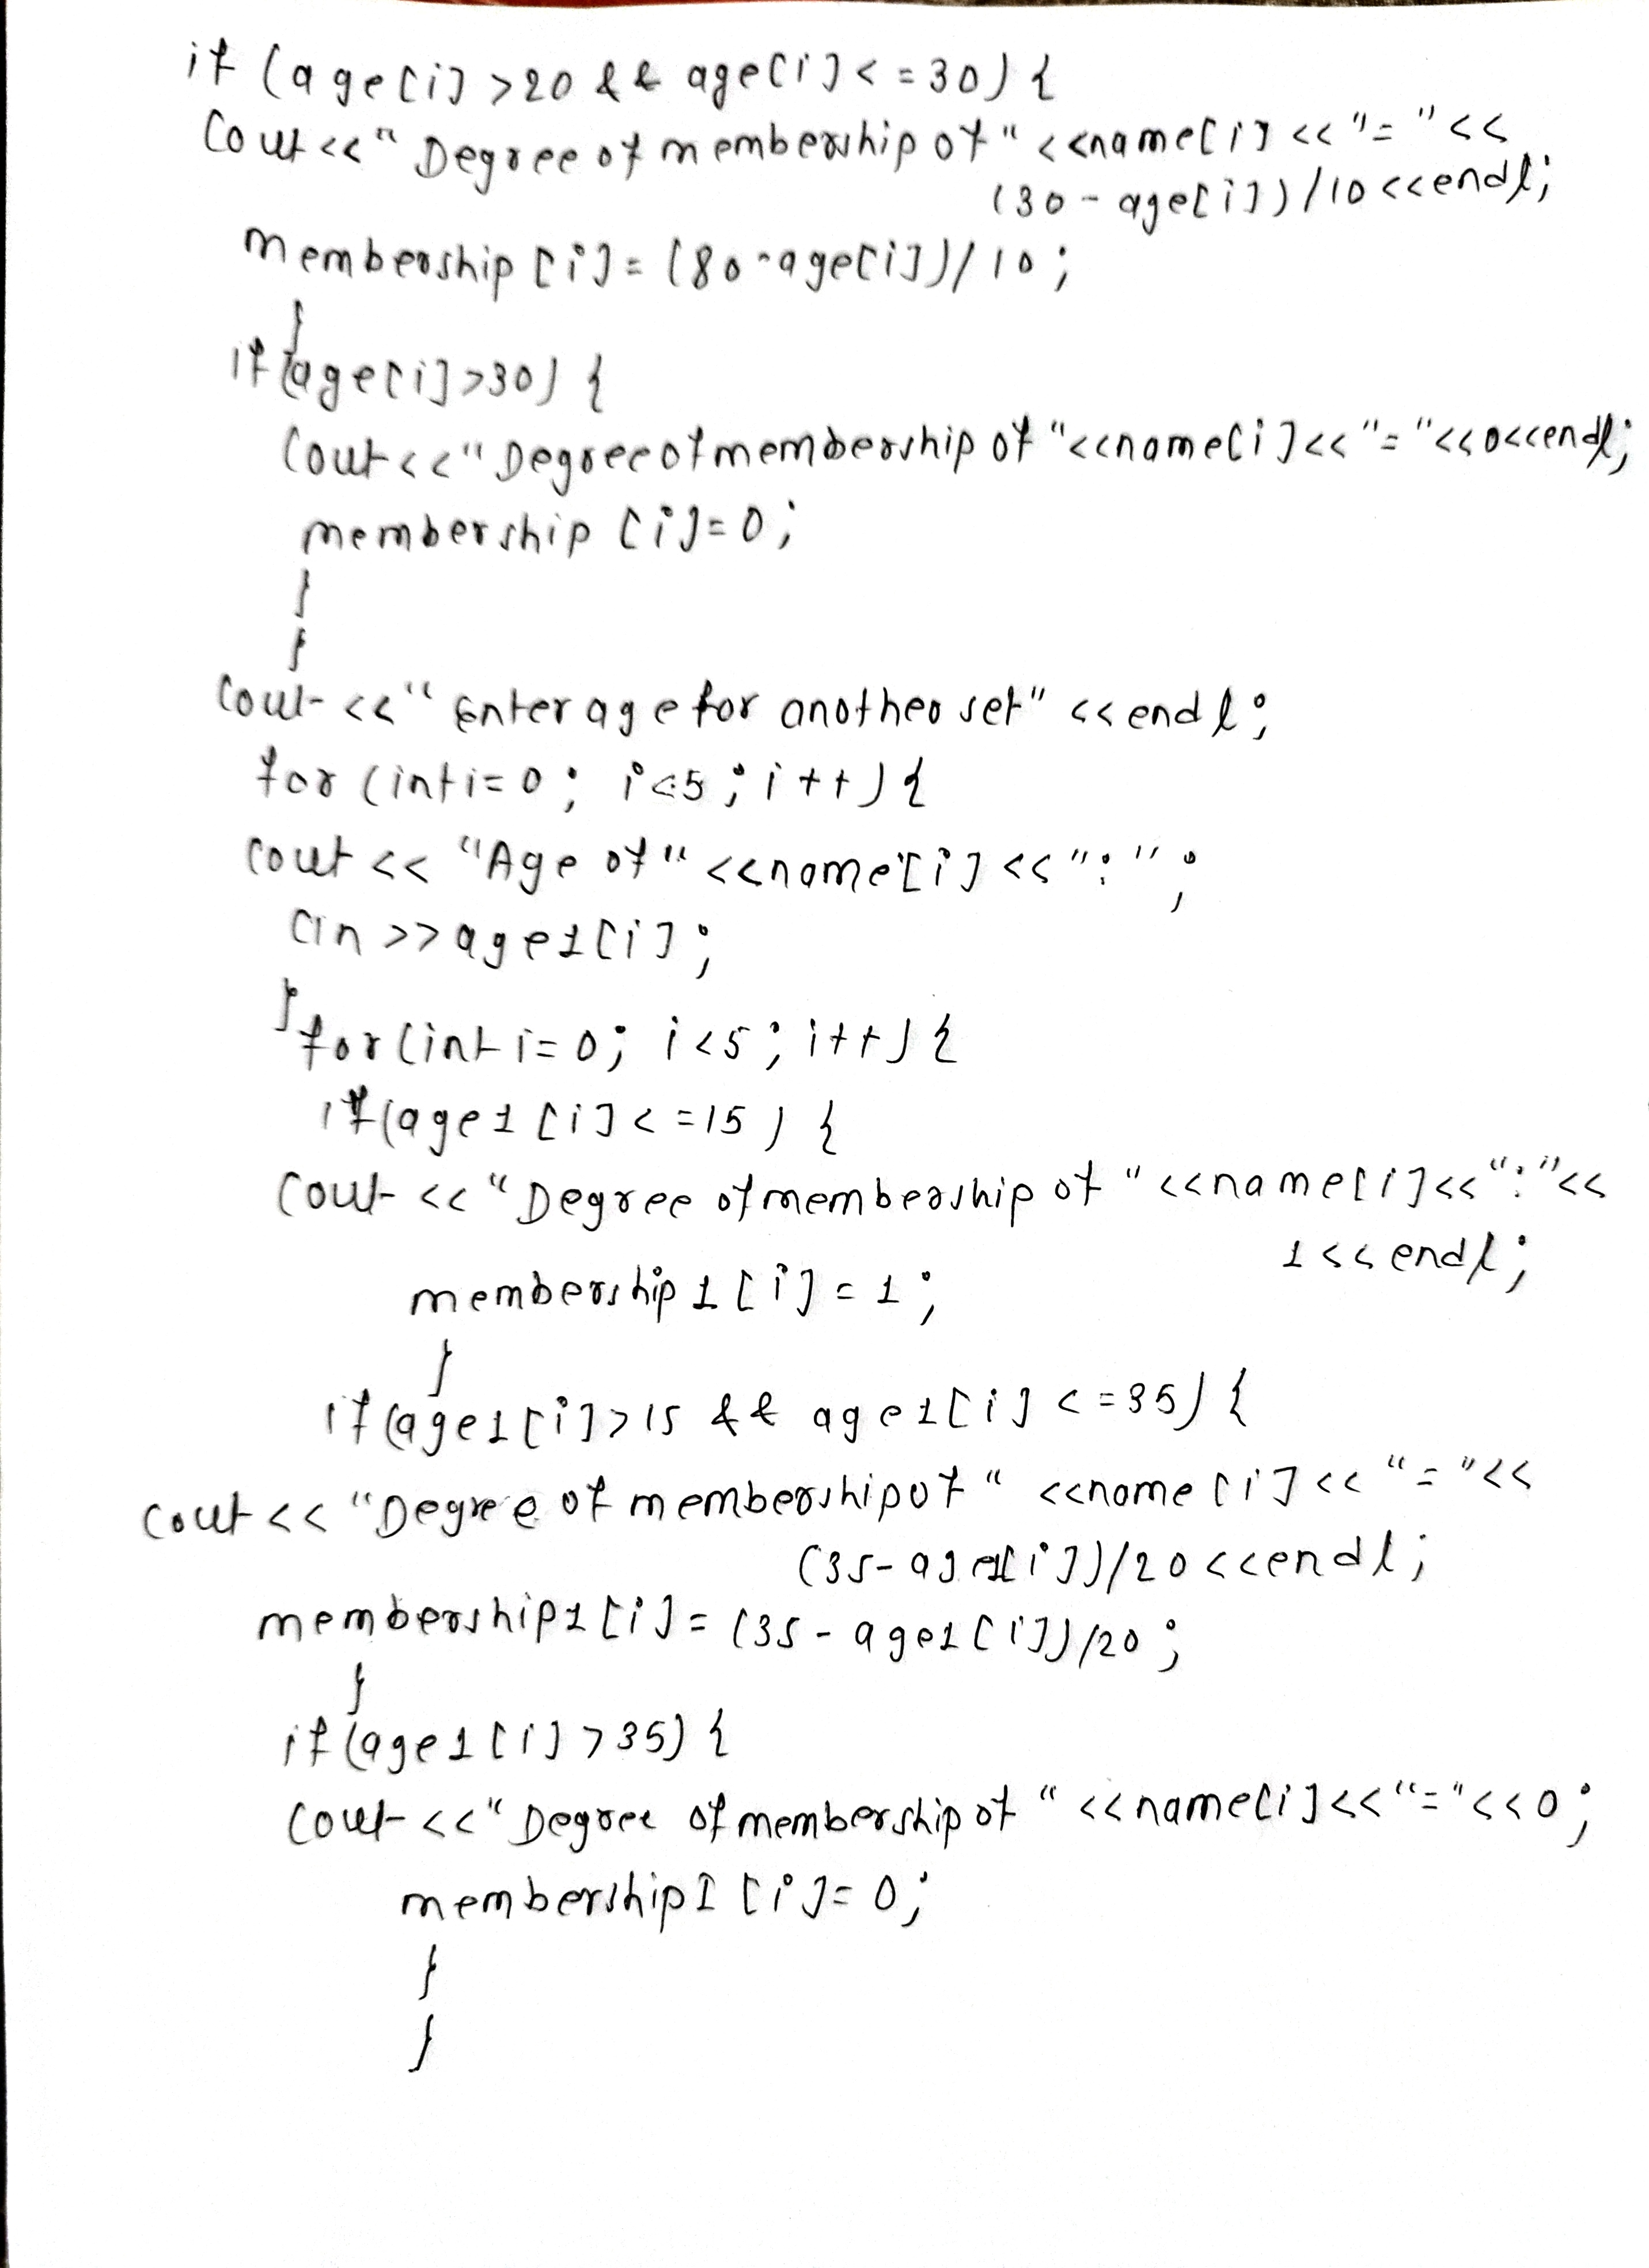 if (age[i] >20 && age[i] <=30) {
Cout <<" Degree of membership of " <<name[i] << "=" <<
(30 - age[i]) /10 <<endl;
membership [i] = (80-age[i]) / 10 ;
}
if (age[i] >30) {
Cout <<" Degree of membership of "<<name[i] << "=" <<0<<endl;
membership [i] = 0 ;
}
}
Cout <<" Enter age for another set" <<endl ;
for (int i = 0 ; i<5 ; i ++) {
Cout << "Age of " <<name[i] <<":" ;
Cin >> age1[i] ;
}
for (int i = 0; i <5 ; i++) {
if (age1 [i] < =15 ) {
Cout <<"Degree of membership of " <<name[i] <<":"<<
1 << endl ;
membership 1 [i] = 1 ;
}
if (age1 [i] > 15 && age1[i] < =35) {
Cout << "Degree of membership of " <<name [i] << "=" <<
(35- age1[i]) /20 <<endl ;
membership1 [i] = (35 - age1 [i]) /20 ;
}
if (age1 [i] >35) {
Cout <<"Degree of membership of " <<name[i] <<"="<<0 ;
membership1 [i] = 0 ;
}
}